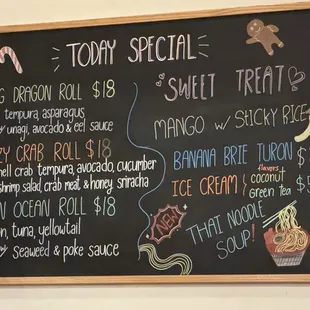 TODAY SPECIAL
G DRAGON ROLL $18
tempura, asparagus
unagi, avocado & eel sauce
ZY CRAB ROLL $18
hell crab tempura, avocado, cucumber
shrimp salad, crab meat & honey, sriracha
N OCEAN ROLL $18
n, tuna, yellowtail
Seaweed & poke sauce
SWEET TREAT
MANGO w/ STICKY RICE
BANANA BRIE TURON $
ICE CREAM { flavors
coconut
Green tea $5
NEW!
THAI NOODLE
SOUP!